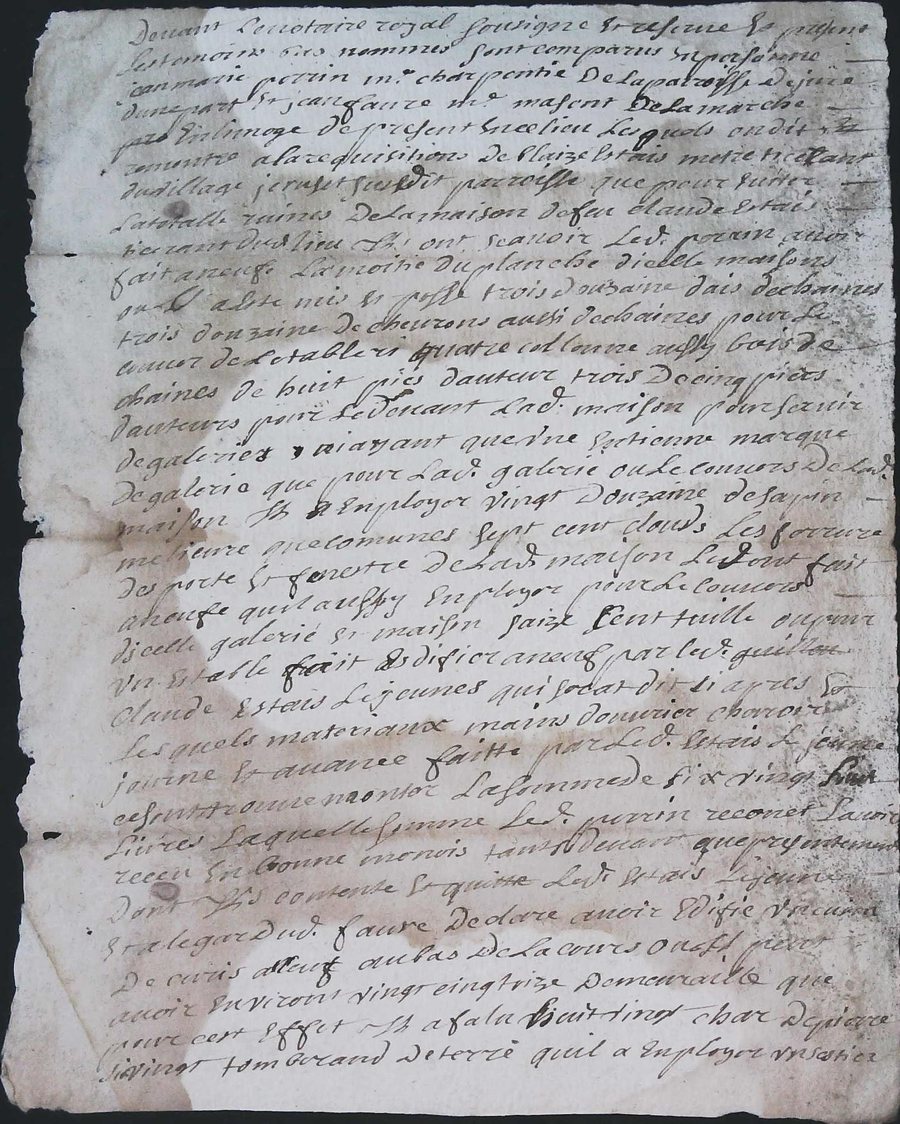 Devant Le notaire royal sousigne et reserve Et present
Les temoins bas nommes sont comparus En personne
jean marie porrin mr. charpentie De La paroisse
dune part Et jean faure mr. masont De La marche
En limoge De present En ce lieu Les quels on dit
a La requisitions De blaize Estais
Du village dit parroisse que pour
La totalle ruines De La maison De feu claude Estais
Dud. lieu Ils ont scavoir Led. porrin avoir
fait a neufe La moitie Du planche dicelle maisons
ou Il a Este mis Et posse trois Douzaine dais de chaines
trois douzaine De chevrons aussi de chaines pour Le
couver de Letableri quatre collonne aussy bois de
chaines de huit pies dauteur trois De cinq pieds
dauteurs pour Le Devant Lad. maison pour servir
De galeries niaiant que Une antienne marque
De galerie que pour Lad. galerie ou Le couvors De Lad.
maison Il a Employer vingt Douzaine de sapin
melieure que comunes sept cent clouds Les forrure
Des porte Et fenestre De Lad. maison Led. ont fait
a neufe quil aussy Employer pour Le couvors
Dicelle galerie Et maison saize Cent tuille ou pour
Un Estable fait Esdifier a neuf par Led.
Claude Estais Le jeunes qui ci apres Et
Les quels materiaux mains douvrier charoir
journe Et avance faitte par Led. Estais Le jeune
ce sont trouve montor La somme De six vingt
Livres Laquelle somme Led. porrin reconet Lavoir
receu En bonne monois tant Devant que presentement
Dont Ils contente Et quitte Led. Estais Le jeune
Et a legar Dud. faure Declare avoir Edifie
De curis a neuf au bas De La cours peut
avoir Environt vingt cinq toize De muraille que
pour cest Effet Il a falu huit vingt char De pierre
six vingt tomberaud De terre quil a Employer